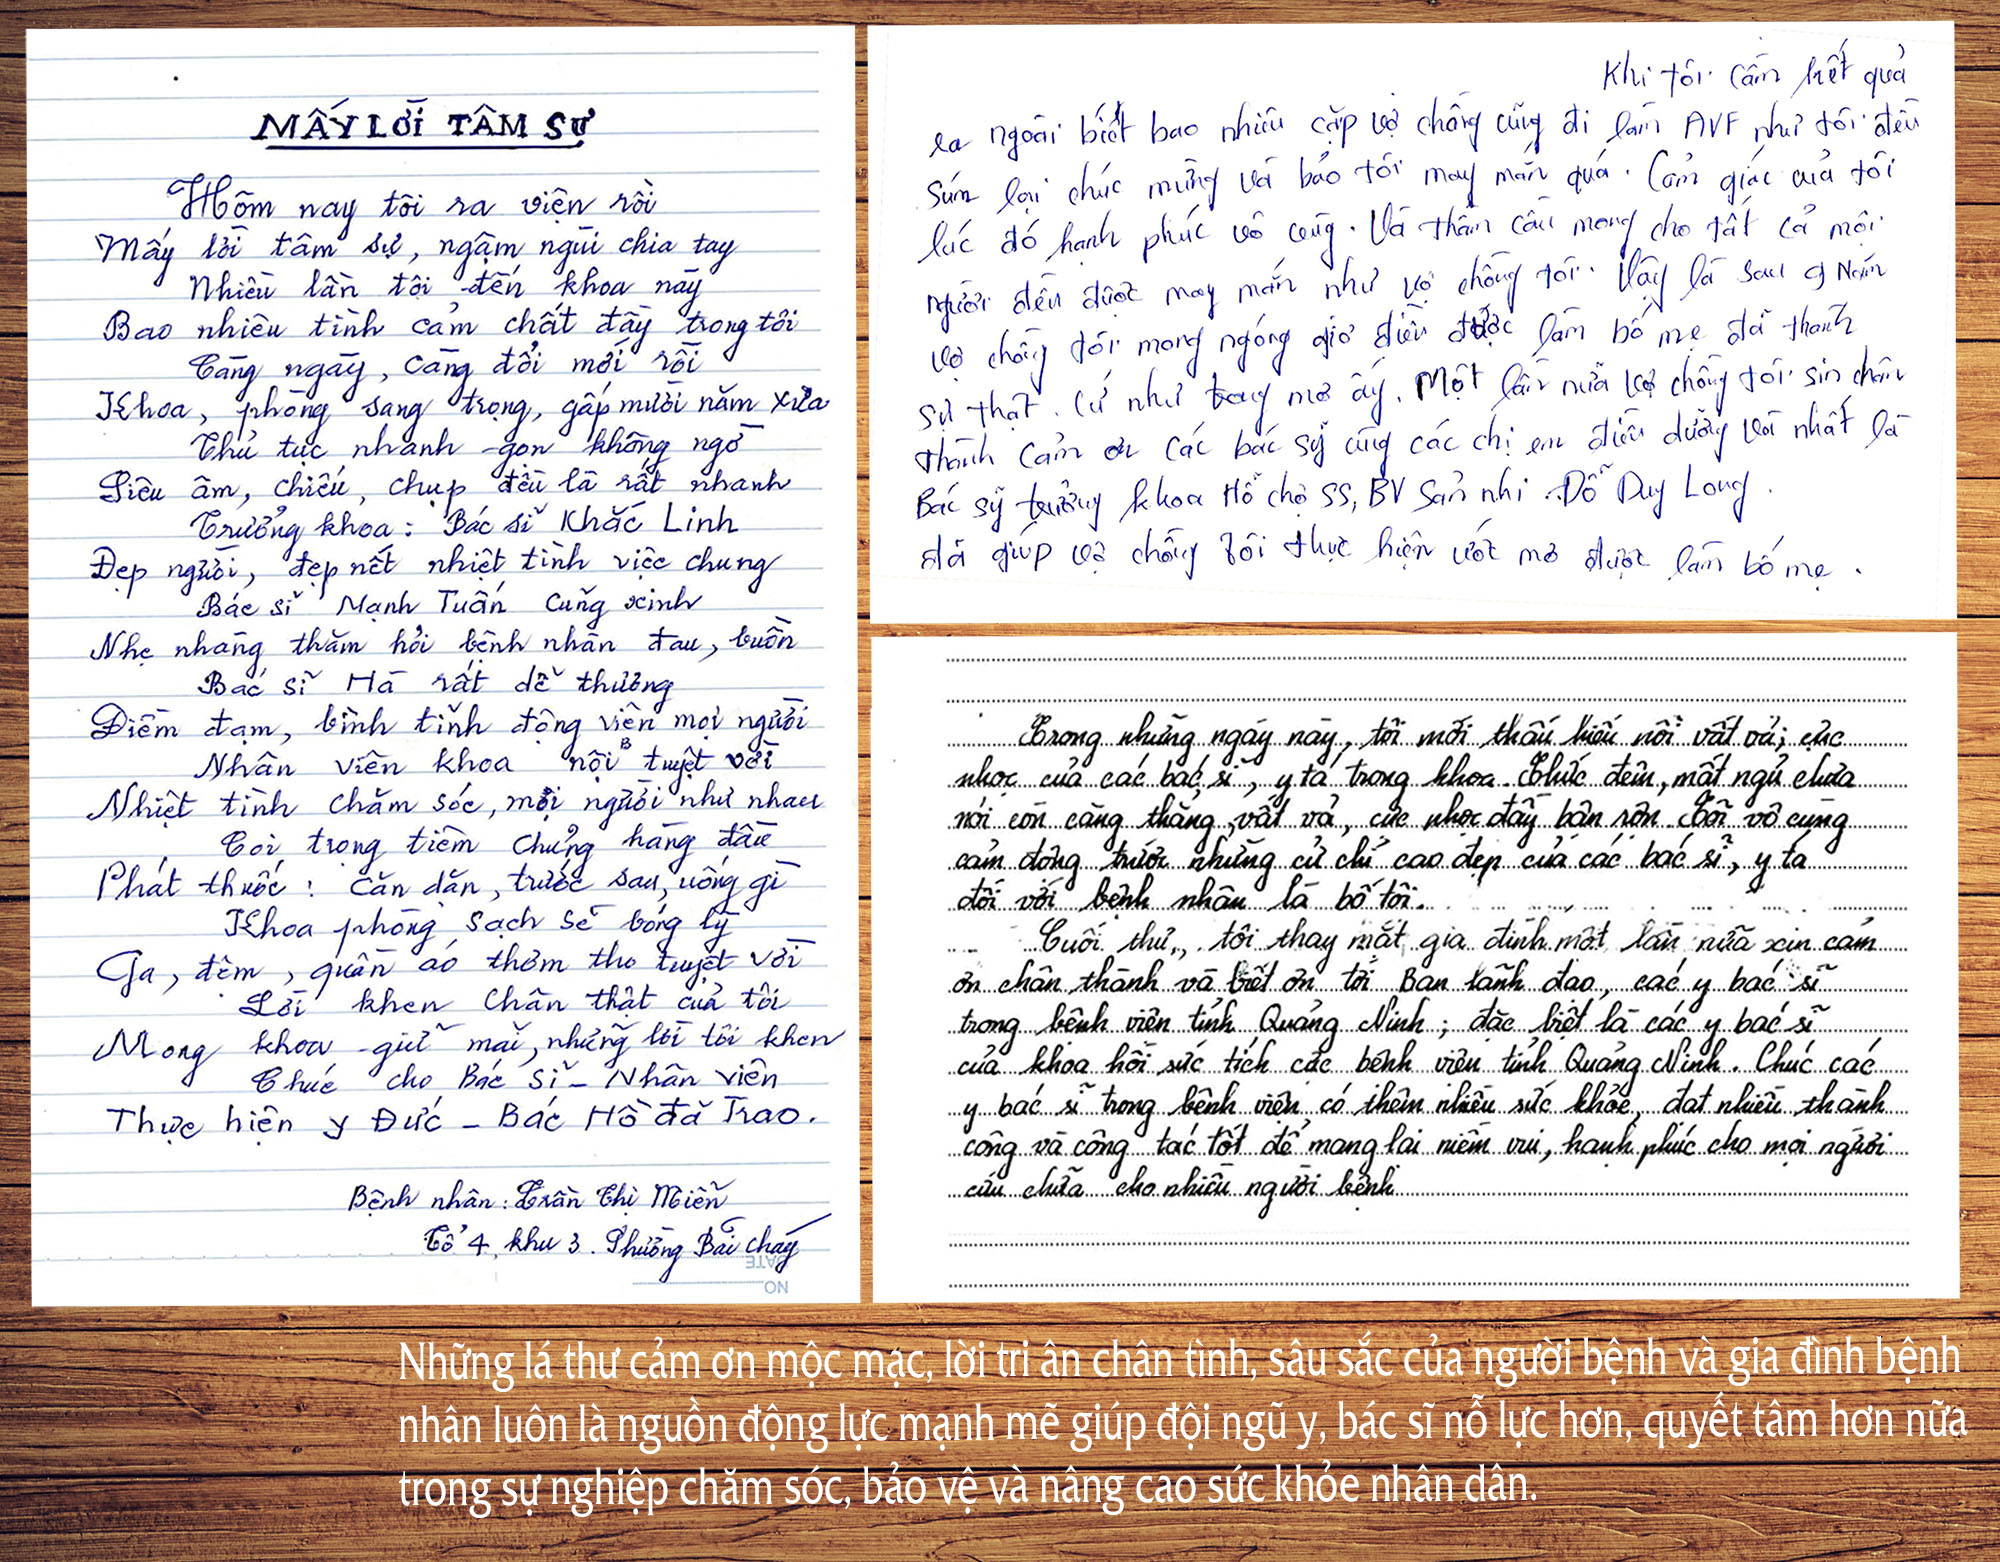 MẤY LỜI TÂM SỰ
Hôm nay tôi ra viện rồi
Mấy lời tâm sự, ngậm ngùi chia tay
Nhiều lần tôi đến khoa này
Bao nhiêu tình cảm chất đầy trong tôi
Càng ngày, càng đổi mới rồi
Khoa, phòng sang trọng, gấp mười năm xưa
Thủ tục nhanh gọn không ngờ
Siêu âm, chiếu, chụp đều là rất nhanh
Trưởng khoa: Bác sĩ Khắc Linh
Đẹp người, đẹp nết nhiệt tình việc chung
Bác sĩ Mạnh Tuấn cũng xinh
Nhẹ nhàng thăm hỏi bệnh nhân đau, buồn
Bác sĩ Hà rất dễ thương
Điềm đạm, bình tĩnh động viên mọi người
Nhân viên khoa nội B tuyệt vời
Nhiệt tình chăm sóc, mọi người như nhau
Coi trọng tiêm chủng hàng đầu
Phát thuốc: Căn dặn, trước sau, uống gì
Khoa phòng sạch sẽ bóng lỳ
Ga, đệm, quần áo thơm tho tuyệt vời
Lời khen chân thật của tôi
Mong khoa giữ mãi, những lời tôi khen
Chúc cho Bác sĩ - Nhân viên
Thực hiện y Đức - Bác Hồ đã Trao.
Bệnh nhân: Trần Thị Miễn
Tổ 4, khu 3. Phường Bãi Cháy
DATE
NO
Khi tôi cầm kết quả
ra ngoài biết bao nhiêu cặp vợ chồng cũng đi làm AVF như tôi đều
súm lại chúc mừng và bảo tôi may mắn quá. Cảm giác của tôi
lúc đó hạnh phúc vô cùng. Và thầm cầu mong cho tất cả mọi
người đều được may mắn như vợ chồng tôi. Vậy là sau 9 năm
vợ chồng tôi mong ngóng giờ điều được làm bố mẹ đã thành
sự thật. Cứ như trong mơ ấy. Một lần nữa vợ chồng tôi sin chân
thành cảm ơn các bác sỹ cùng các chị em điều dưỡng và nhất là
Bác sỹ trưởng khoa Hỗ chợ SS, BV Sản nhi Đỗ Duy Long.
đã giúp vợ chồng tôi thực hiện ước mơ được làm bố mẹ.
Trong những ngày này, tôi mới thấu hiểu nỗi vất vả, cực
nhọc của các bác sĩ, y tá trong khoa. Thức đêm, mất ngủ chưa
nói còn căng thẳng, vất vả, cực nhọc đầy bận rộn. Tôi vô cùng
cảm động trước những cử chỉ cao đẹp của các bác sĩ, y tá
đối với bệnh nhân là bố tôi.
Cuối thư, tôi thay mặt gia đình một lần nữa xin cảm
ơn chân thành và biết ơn tới Ban lãnh đạo, các y bác sĩ
trong bệnh viện tỉnh Quảng Ninh; đặc biệt là các y bác sĩ
của khoa hồi sức tích cực bệnh viện tỉnh Quảng Ninh. Chúc các
y bác sĩ trong bệnh viện có thêm nhiều sức khỏe, đạt nhiều thành
công và công tác tốt để mang lại niềm vui, hạnh phúc cho mọi người
cứu chữa cho nhiều người bệnh
Những lá thư cảm ơn mộc mạc, lời tri ân chân tình, sâu sắc của người bệnh và gia đình bệnh
nhân luôn là nguồn động lực mạnh mẽ giúp đội ngũ y, bác sĩ nỗ lực hơn, quyết tâm hơn nữa
trong sự nghiệp chăm sóc, bảo vệ và nâng cao sức khỏe nhân dân.